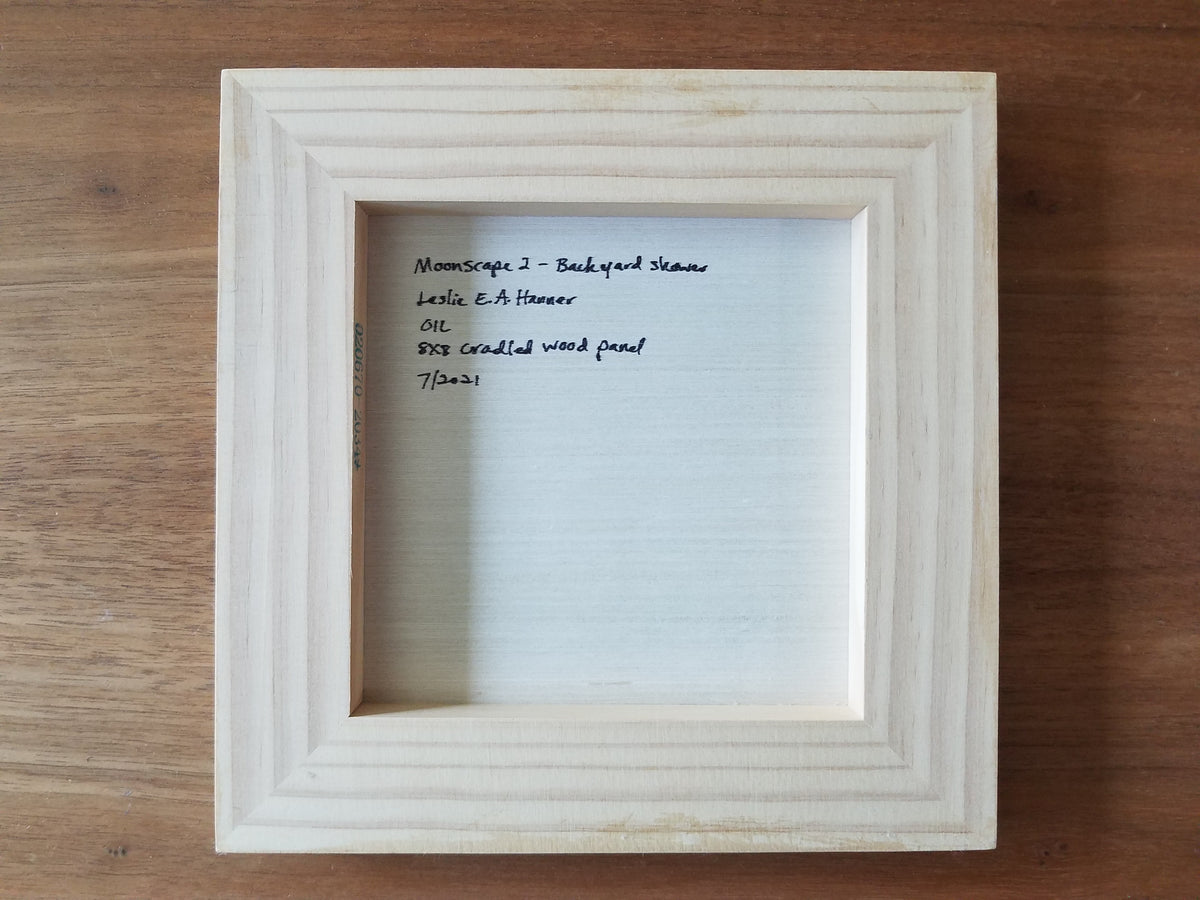 Moonscape 2 - Backyard shower
Leslie E.A. Hanner
OIL
8x8 cradled wood panel
7/2021
020670